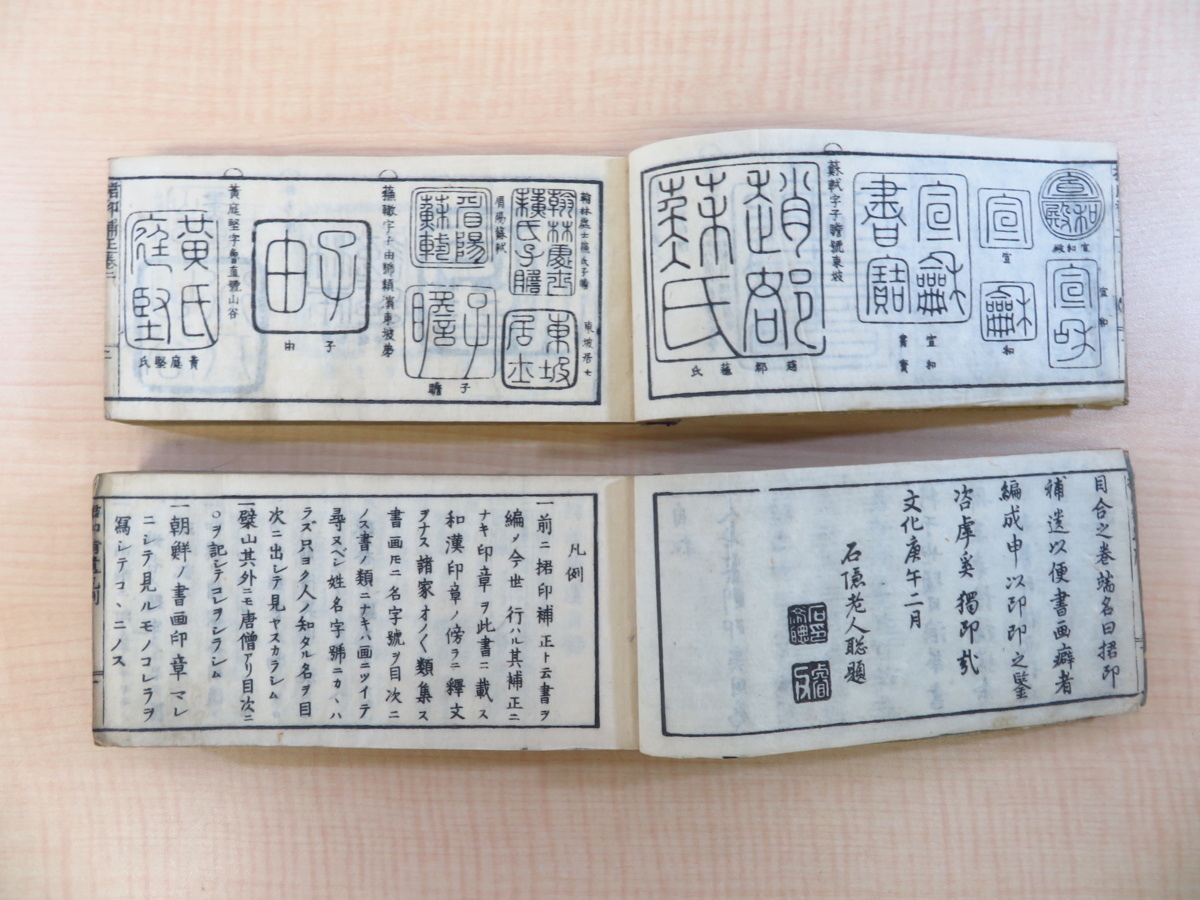 宣和殿
宣和
宣
和
宣和
書寶
蘇軾字子瞻號東坡
趙郡蘇氏
東坡居士
子瞻
眉陽蘇軾
蘇轍字子由號潁濱東坡弟
子由
黃庭堅字魯直號山谷
黃庭堅氏
目合之卷端名曰捃印
補遺以便書画癖者
編成申以印印之鑒
文化庚午二月
石隱老人聡題
凡例
一前ニ捃印補正ト云書ヲ
編メ今世ニ行ハル其補正ニ
ナキ印章ヲ此書ニ載ス
和漢印章ノ傍ラニ釋文
ヲナス諸家オノ〱類集ス
書画尼ニ名字號ヲ目次ニ
ノス書ノ類ニナキハ画ニツイテ
尋ヌベシ姓名字號ニカヽハ
ラズ只ヨク人ノ知タル名ヲ目
次ニ出シテ見ヤスカラシム
一檗山其外ニモ唐僧アリ目次ニ
○ヲ記シテコレヲシラシム
一朝鮮ノ書画印章マレ
ニシテ見ルモノコレラヲ
寫シテコヽニノス